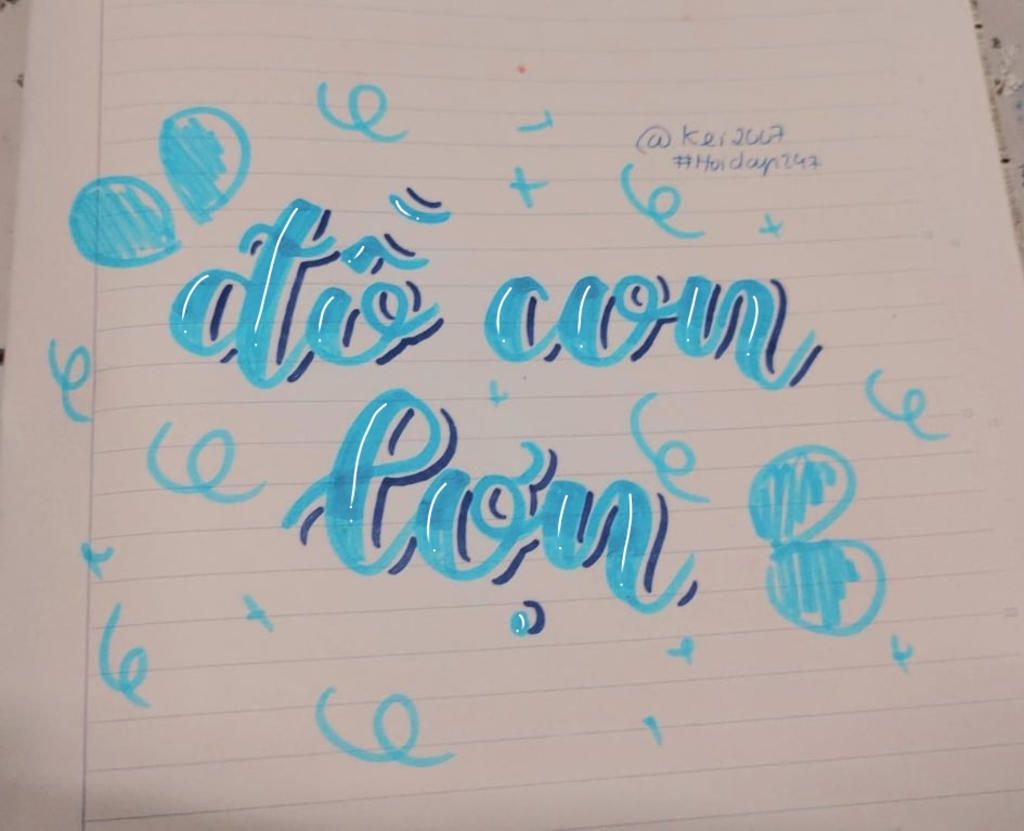 @Kei2007
#Hoidap247
đồ con
lợn